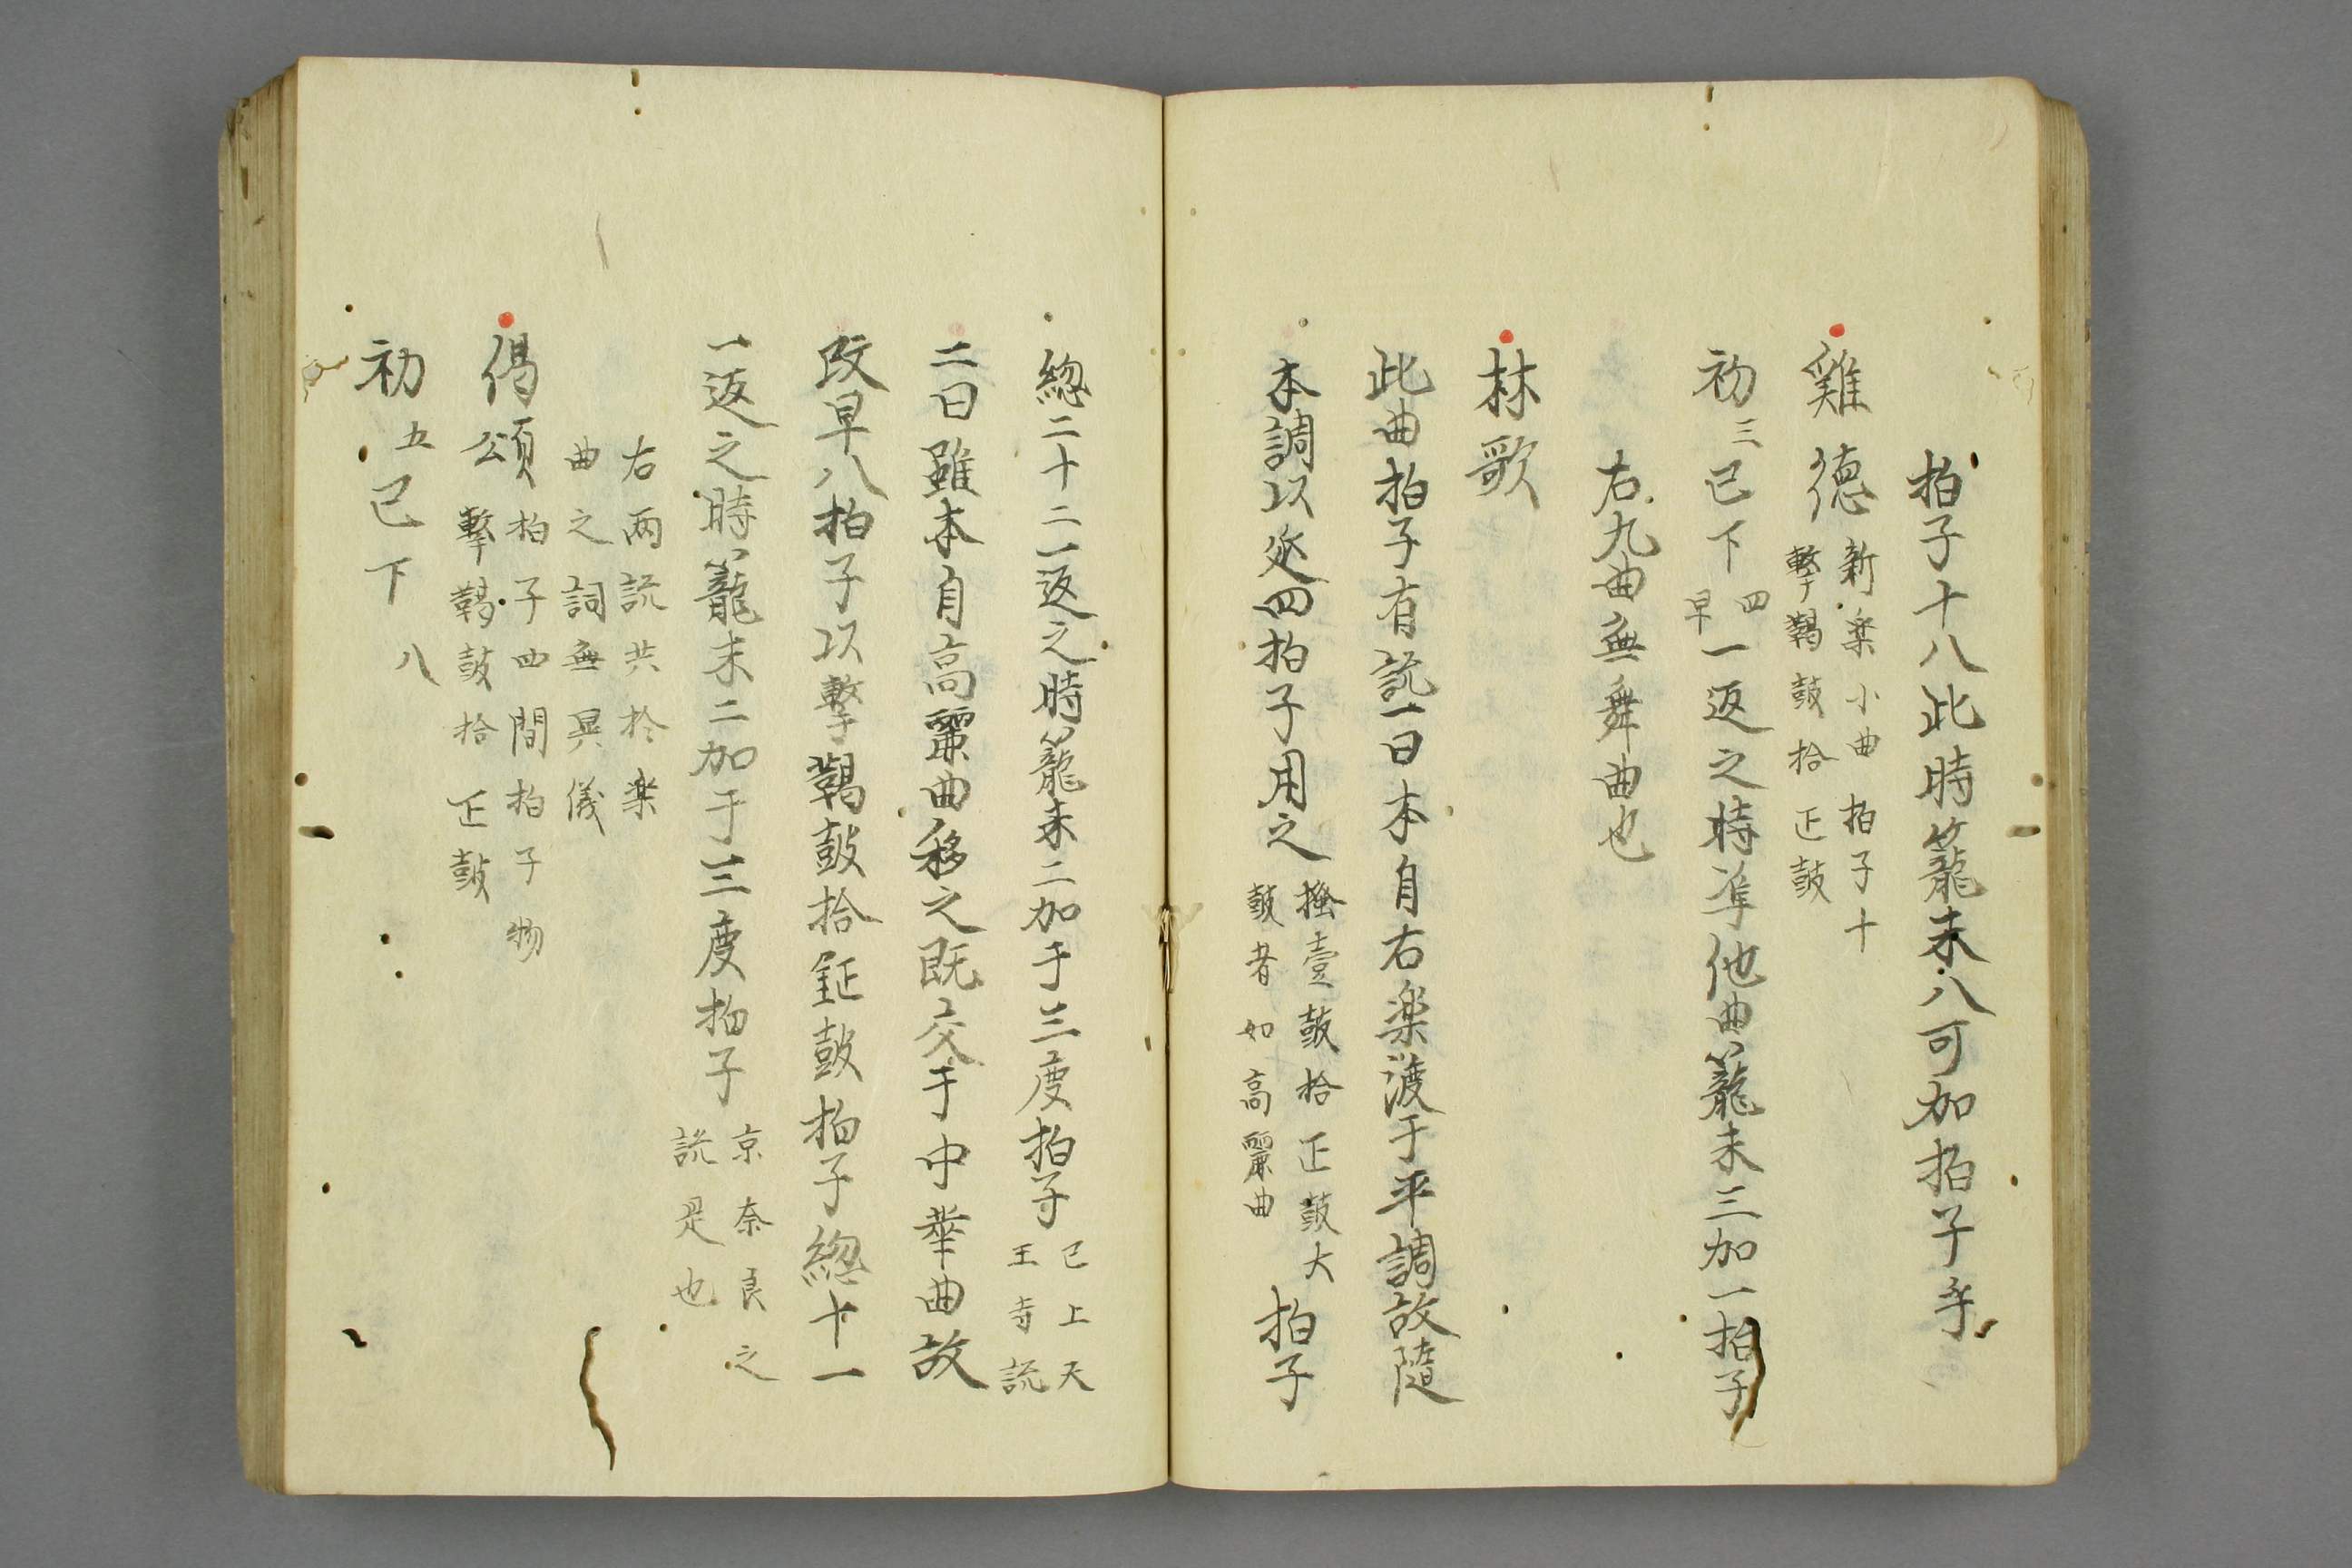 拍子十八此時籠未八可加拍子乎
雞德
新楽小曲 拍子十
撃鞨鼓拾正鼓
初三已下四早一返之時準他曲籠未三加一拍子
右九曲無舞曲也
林歌
此曲拍子有説一曰本自右楽渡于平調故隨
本調以延四拍子用之
搔壹鼓拾正鼓大
鼓者如高麗曲
拍子
總二十二一返之時籠未二加于三度拍子
已上天
王寺説
二曰雖本自高麗曲移之既交于中華曲故
改早八拍子以撃鞨鼓拾鉦鼓拍子總十一
一返之時籠未二加于三度拍子
京奈良之
説是也
右兩説共於楽
曲之詞無異儀
偈頌
拍子四間拍子物
撃鞨鼓拾正鼓
初五已下八